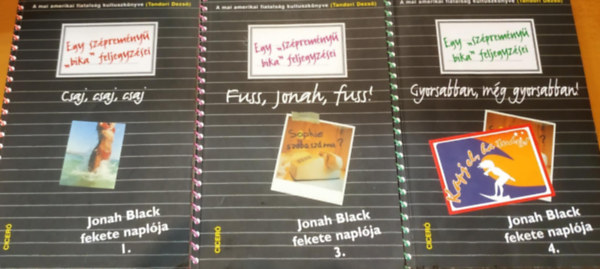 A mai amerikai fiatalság kultuszkönyve (Tandori Dezső)
Egy szépreményű
„bika” feljegyzései
Csaj, csaj, csaj
CICERÓ
Jonah Black
fekete naplója
1.
A mai amerikai fiatalság kultuszkönyve (Tandori Dezső)
Egy „szépreményű
bika” feljegyzései
Fuss, Jonah, fuss!
Sophie
szobaszáma?
CICERÓ
Jonah Black
fekete naplója
3.
A mai amerikai fiatalság kultuszkönyve (Tandori Dezső)
Egy „szépreményű
bika” feljegyzései
Gyorsabban, még gyorsabban!
Kapj el, ha tudsz!
CICERÓ
Jonah Black
fekete naplója
4.